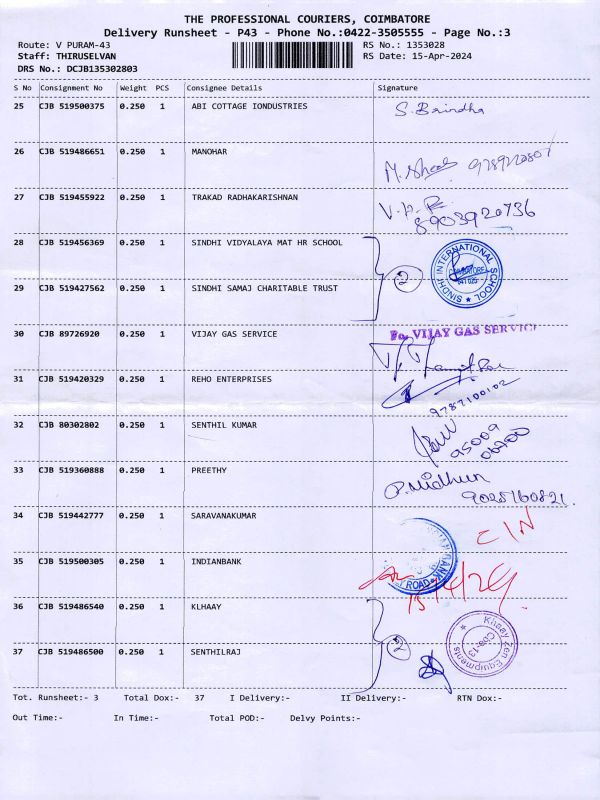 THE PROFESSIONAL COURIERS, COIMBATORE
Delivery Runsheet - P43 - Phone No.:0422-3505555 - Page No.:3
Route: V PURAM-43 RS No.: 1353028
Staff: THIRUSELVAN RS Date: 15-Apr-2024
DRS No.: DCJB135302803
S No Consignment No Weight PCS Consignee Details Signature
25 CJB 519500375 0.250 1 ABI COTTAGE IONDUSTRIES S. Brindha
26 CJB 519486651 0.250 1 MANOHAR
27 CJB 519455922 0.250 1 TRAKAD RADHAKARISHNAN
8903920736
28 CJB 519456369 0.250 1 SINDHI VIDYALAYA MAT HR SCHOOL
2 SINDHI INTERNATIONAL SCHOOL
29 CJB 519427562 0.250 1 SINDHI SAMAJ CHARITABLE TRUST
30 CJB 89726920 0.250 1 VIJAY GAS SERVICE Fo. VIJAY GAS SERVICE
31 CJB 519420329 0.250 1 REHO ENTERPRISES
9787100102
32 CJB 80302802 0.250 1 SENTHIL KUMAR
95009
06700
33 CJB 519360888 0.250 1 PREETHY P. Midhun
9025760821.
34 CJB 519442777 0.250 1 SARAVANAKUMAR C/N
35 CJB 519500305 0.250 1 INDIANBANK
ROAD 15/4/24
36 CJB 519486540 0.250 1 KLHAAY
2 Khaay Zen Equipments CBE-13
37 CJB 519486500 0.250 1 SENTHILRAJ
Tot. Runsheet:- 3 Total Dox:- 37 I Delivery:- II Delivery:- RTN Dox:-
Out Time:- In Time:- Total POD:- Delvy Points:-